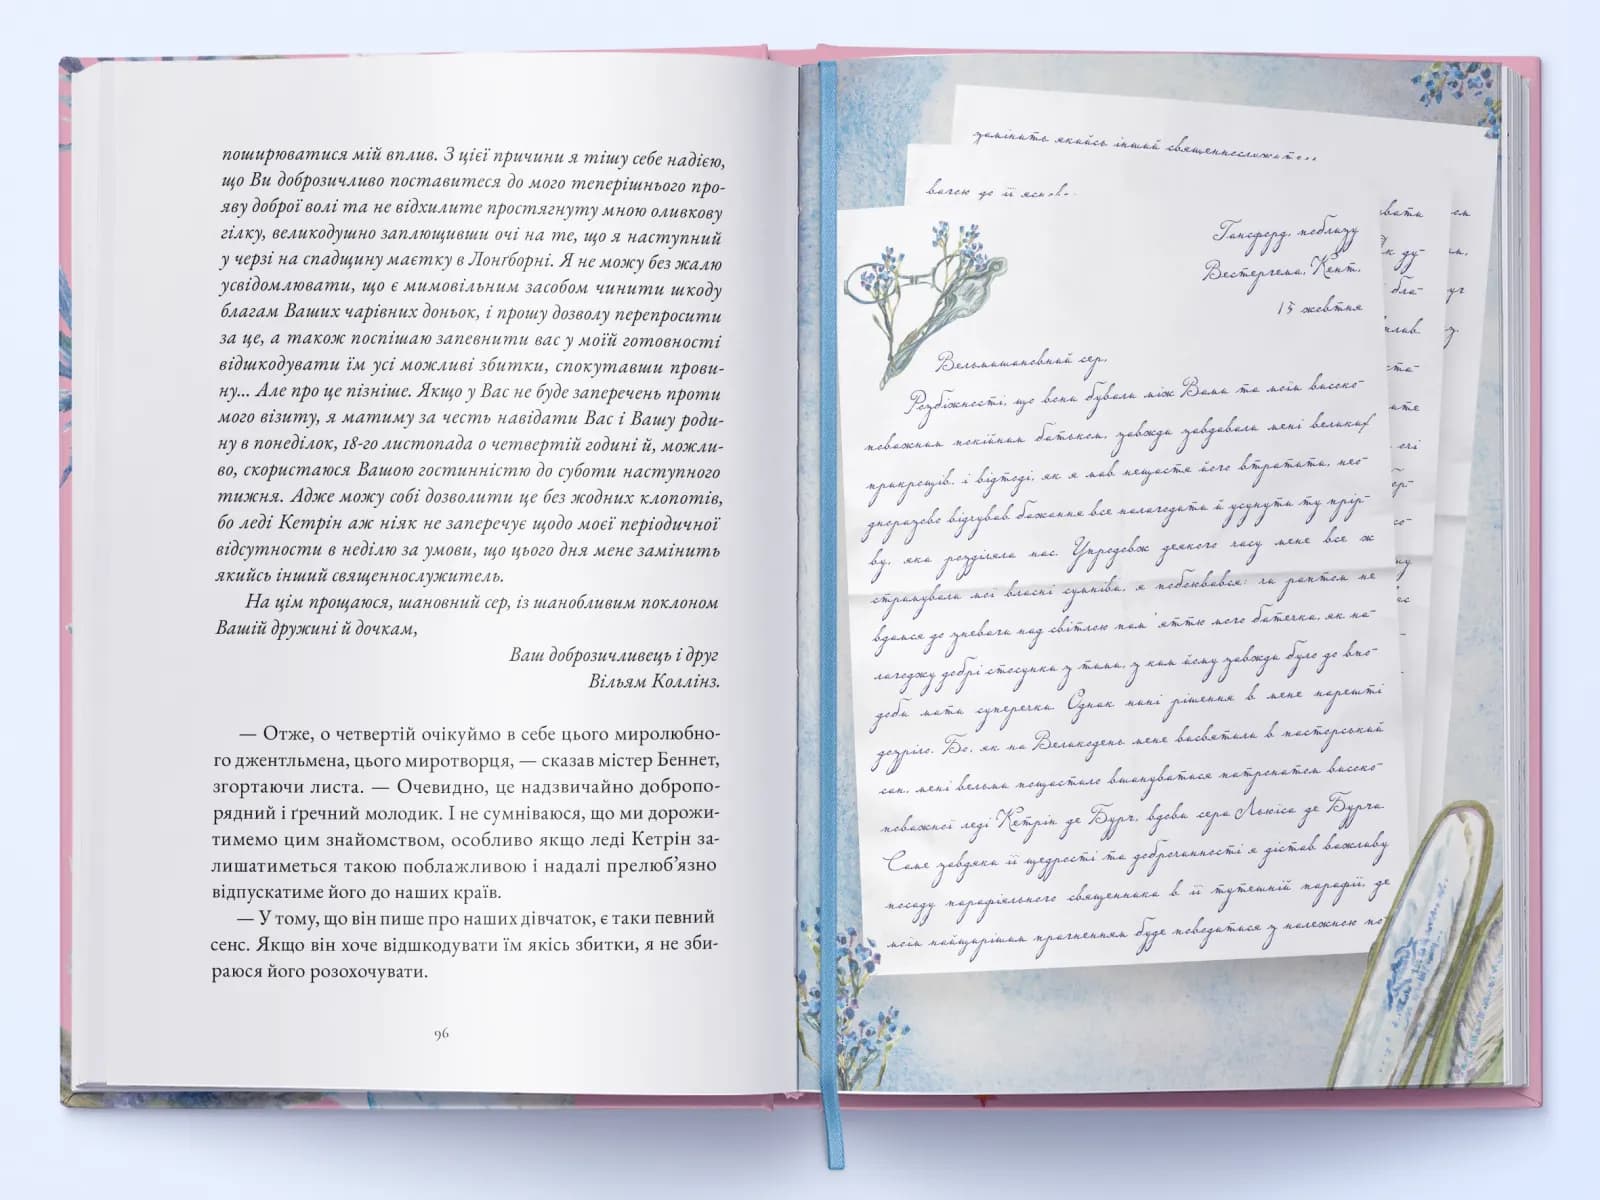 поширюватися мій вплив. З цієї причини я тішу себе надією,
що Ви доброзичливо поставитеся до мого теперішнього про-
яву доброї волі та не відхилите простягнуту мною оливкову
гілку, великодушно заплющивши очі на те, що я наступний
у черзі на спадщину маєтку в Лонґборні. Я не можу без жалю
усвідомлювати, що є мимовільним засобом чинити шкоду
благам Ваших чарівних доньок, і прошу дозволу перепросити
за це, а також поспішаю запевнити вас у моїй готовності
відшкодувати їм усі можливі збитки, спокутавши прови-
ну... Але про це пізніше. Якщо у Вас не буде заперечень проти
мого візиту, я матиму за честь навідати Вас і Вашу роди-
ну в понеділок, 18-го листопада о четвертій годині й, можли-
во, скористаюся Вашою гостинністю до суботи наступного
тижня. Адже можу собі дозволити це без жодних клопотів,
бо леді Кетрін аж ніяк не заперечує щодо моєї періодичної
відсутности в неділю за умови, що цього дня мене замінить
якийсь інший священнослужитель.
На цім прощаюся, шановний сер, із шанобливим поклоном
Вашій дружині й дочкам,
Ваш доброзичливець і друг
Вільям Коллінз.
— Отже, о четвертій очікуймо в себе цього миролюбно-
го джентльмена, цього миротворця, — сказав містер Беннет,
згортаючи листа. — Очевидно, це надзвичайно добропо-
рядний і ґречний молодик. І не сумніваюся, що ми дорожи-
тимемо цим знайомством, особливо якщо леді Кетрін за-
лишатиметься такою поблажливою і надалі прелюб’язно
відпускатиме його до наших країв.
— У тому, що він пише про наших дівчаток, є таки певний
сенс. Якщо він хоче відшкодувати їм якісь збитки, я не зби-
раюся його розохочувати.
96
замінить якийсь інший священнослужите
вагою до її
Гансфорд, поблизу
Вестергема, Кент,
15 жовтня
Вельмишановний сер,
Розбіжності, що вони бували між Вами та моїм високо-
поважним покійним батьком, завжди завдавали мені великих
прикрощів, і відтоді, як я мав нещастя його втратити, неод-
норазово відчував бажання все налагодити й усунути ту прір-
ву, яка розділяла нас. Упродовж деякого часу мене все ж
стримували мої власні сумніви, я побоювався: чи раптом не
вдамся до зневаги над світлою пам’яттю мого батечка, як на-
лагоджу добрі стосунки з тими, з ким йому завжди було до впо-
доби мати суперечки. Однак нині рішення в мене нарешті
дозріло. Бо, як на Великдень мене висвятили в пасторський
сан, мені вельми пощастило вшануватися патронатом високо-
поважної леді Кетрін де Бурґ, вдови сера Льюїса де Бурґа.
Саме завдяки її щедрості та доброчинності я дістав важливу
посаду парафіяльного священника в її тутешній парафії, де
моїм найщирішим прагненням буде поводитися з належною по-